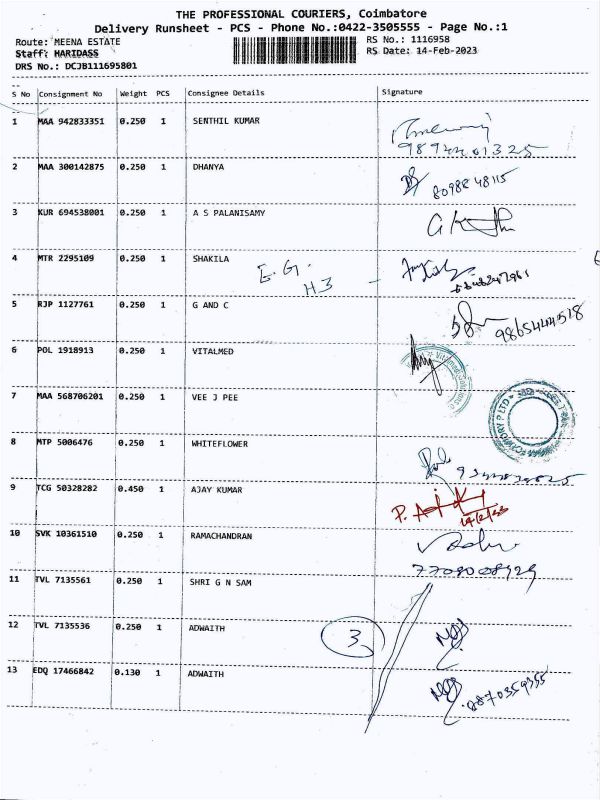 THE PROFESSIONAL COURIERS, Coimbatore
Delivery Runsheet - PCS - Phone No.:0422-3505555 - Page No.:1
Route: MEENA ESTATE RS No.: 1116958
Staff: HARIDASS RS Date: 14-Feb-2023
DRS No.: DCJB111695801
S No Consignment No Weight PCS Consignee Details Signature
1 MAA 942833351 0.250 1 SENTHIL KUMAR
9894401325
2 MAA 300142875 0.250 1 DHANYA
8098848115
3 KUR 694538001 0.250 1 A S PALANISAMY
4 MTR 2295109 0.250 1 SHAKILA
E.G.
H3
5 RJP 1127761 0.250 1 G AND C
9865444518
6 POL 1918913 0.250 1 VITALMED
7 MAA 568706201 0.250 1 VEE J PEE
8 MTP 5006476 0.250 1 WHITEFLOWER
9 TCG 50328282 0.450 1 AJAY KUMAR
14/2/23
10 SVK 10361510 0.250 1 RAMACHANDRAN
11 TVL 7135561 0.250 1 SHRI G N SAM
12 TVL 7135536 0.250 1 ADWAITH
3
13 EDQ 17466842 0.130 1 ADWAITH